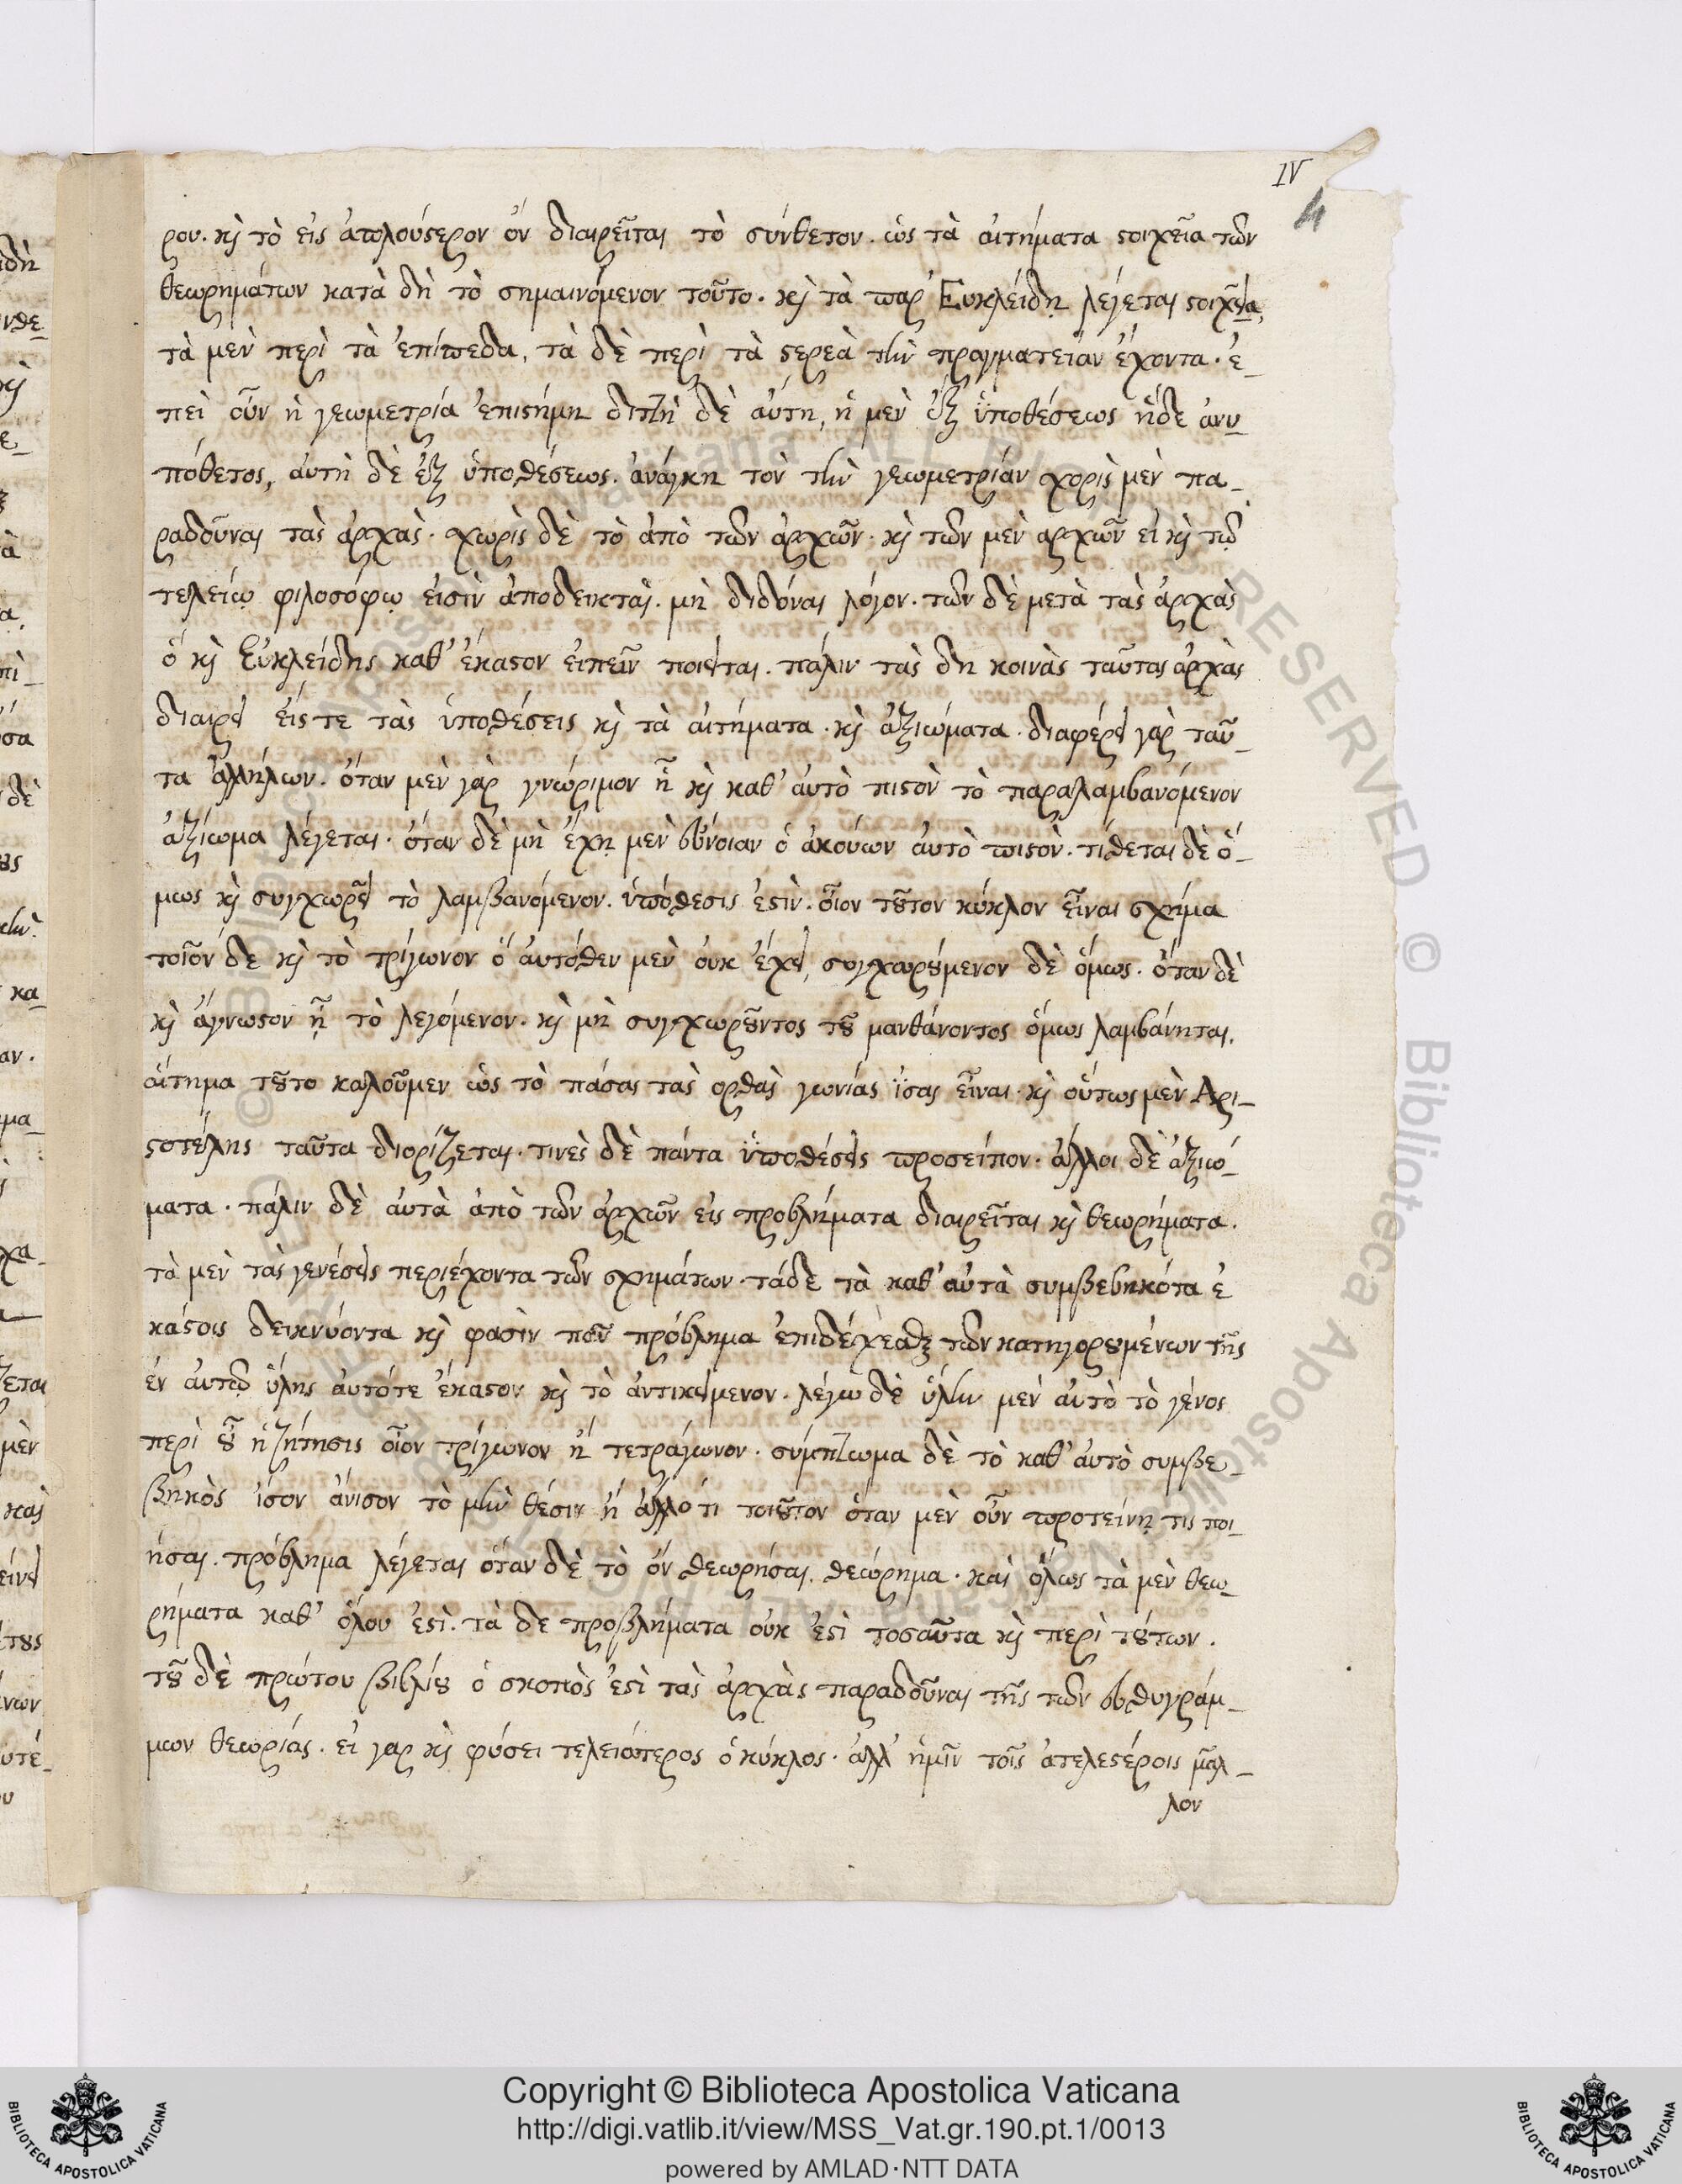 IV
4
ρου. κὶ τὸ εἰς ἁπλούστερον ὂν διαιρεῖται τὸ σύνθετον. ὡς τὰ αἰτήματα στοιχεῖα τῶν
θεωρημάτων κατὰ δὴ τὸ σημαινόμενον τοῦτο. κὶ τὰ παρ' Ευκλείδῃ λέγεται στοιχεῖα,
τὰ μὲν περὶ τὰ ἐπίπεδα, τὰ δὲ περὶ τὰ στερεὰ τὴν πραγματείαν ἔχοντα. ἐ_
πεὶ οὖν ἡ γεωμετρία ἐπιστήμη διττὴ δὲ αὐτη, ἡ μὲν ἐξ ὑποθέσεως ἡδε ἀνυ_
πόθετος, ἀυτὴ δὲ ἐξ ὑποθέσεως. ἀνάγκη τὸν τὴν γεωμετρίαν χορὶς μὲν πα_
ραδοῦναι τὰς ἀρχὰς. χωρὶς δὲ τὸ ἀπὸ τῶν ἀρχῶν. κὶ τῶν μὲν αρχῶν εἰ κὶ τῷ
τελείῳ φιλοσόφῳ εἰσὶν ἀποδεικταὶ. μὴ διδόναι λόγον. τῶν δὲ μετὰ τὰς ἀρχὰς
ὁ κὶ Εὐκλείδης καθ' ἕκαστον ἐιπεῖν ποιεῖται. πάλιν τὰς δη κοινὰς ταῦτας ἀρχὰς
διαιρεῖ εἴς τε τὰς ὑποθέσεις κὶ τὰ αἰτήματα. κὶ ἀξιώματα. διαφέρει γὰρ ταῦ_
τα ἀλλήλων. ὅταν μὲν γὰρ γνώριμον ᾖ κὶ καθ' ἁυτὸ πιστὸν τὸ παραλαμβανόμενον
ἀξίωμα λέγεται. ὅταν δὲ μὴ ἔχῃ μὲν ἔννοιαν ὁ ἀκούων ἀυτὸ πιστὸν. τίθεται δὲ ὅ_
μως κὶ συγχωρεῖ τὸ λαμβανόμενον. ὑπόθεσις ἐστὶν. οἷον τοῦτον κύκλον εἶναι σχῆμα
τοιόνδε κὶ τὸ τρίγωνον ὃ ἀυτόθεν μὲν ὀυκ ἔχει, συγχωρούμενον δὲ ὅμως. ὅταν δὲ
κὶ ἄγνωστον ᾖ τὸ λεγόμενον. κὶ μὴ συγχωροῦντος τοῦ μανθάνοντος ὅμως λαμβάνηται,
ἀίτημα τοῦτο καλοῦμεν ὡς τὸ πάσας τὰς ορθὰς γωνίας ἴσας εἶναι. κὶ οὕτως μὲν Αρι_
στοτέλης ταῦτα διορίζεται. τινὲς δὲ πάντα ὑποθέσεις προσείπον. ἄλλοι δὲ ἀξιώ_
ματα. πάλιν δὲ ἀυτὰ ἀπὸ τῶν ἀρχῶν εἰς προβλήματα διαιρεῖται κὶ θεωρήματα.
τὰ μὲν τὰς γενέσεις περιέχοντα τῶν σχημάτων. τάδε τὰ καθ' αὑτὰ συμβεβηκότα ἑ
κάστοις δεικνύοντα κὶ φασὶν πᾶν πρόβλημα ἐπιδέχεσθαι τῶν κατηγορουμένων τῆς
ἐν ἀυτῷ ὕλης ἀυτότε ἕκαστον κὶ τὸ ἀντικείμενον. λέγω δὲ ὕλην μὲν ἀυτὸ τὸ γένος
περὶ οὗ ἡ ζήτησις οἷον τρίγωνον ἢ τετράγωνον. σύμπτωμα δὲ τὸ καθ' ἁυτὸ συμβε_
βηκὸς ἴσον ἄνισον τὸ μὴν θέσιν ἢ ἄλλό τι τοιοῦτον ὅταν μὲν οὖν προτείνῃ τις ποι_
ῆσαι. πρόβλημα λέγεται ὅταν δὲ τὸ ὂν θεωρῆσαι. θεώρημα. καὶ ὅλως τὰ μὲν θεω_
ρήματα καθ' ὅλου ἐστὶ. τὰ δε προβλήματα οὐκ ἐστὶ τοσαῦτα κὶ περὶ τούτων.
τοῦ δὲ πρώτου βιβλίου ὁ σκοπὸς ἐστὶ τὰς ἀρχὰς παραδοῦναι τῆς τῶν εὐθυγράμ_
μων θεωρίας. εἰ γαρ κὶ φύσει τελειότερος ὁ κύκλος. ἀλλ' ἡμῖν τοῖς ἀτελεστέροις μᾶλ_
λον
Copyright © Biblioteca Apostolica Vaticana
http://digi.vatlib.it/view/MSS_Vat.gr.190.pt.1/0013
powered by AMLAD·NTT DATA